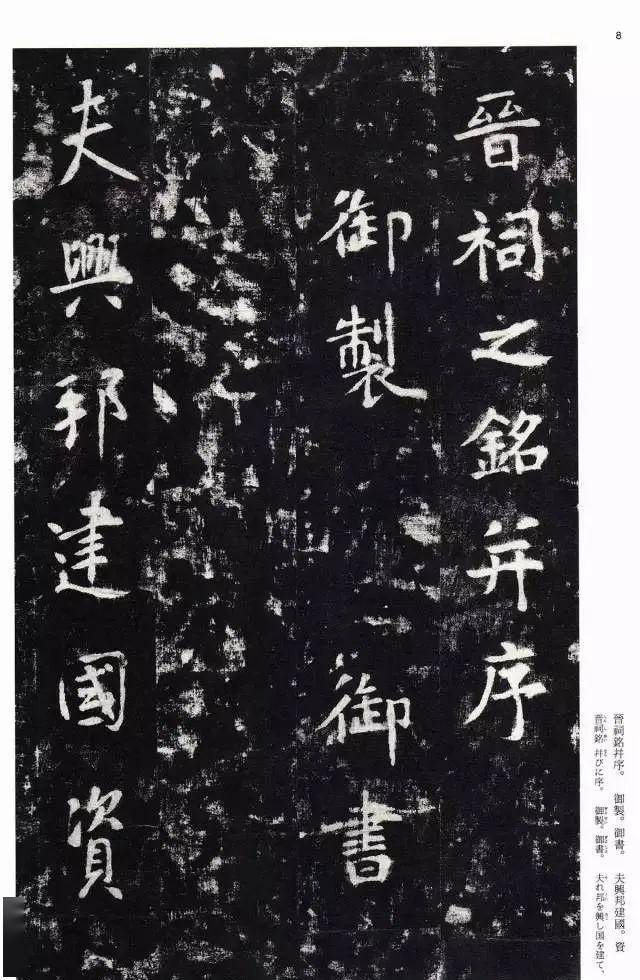 8
晉祠之銘并序
御製 御書
夫興邦建國資
晉祠銘幷序。 御製。御書。 夫興邦建國。資
晋祠銘 幷びに序。 御製。御書。 夫れ邦を興し国を建て、